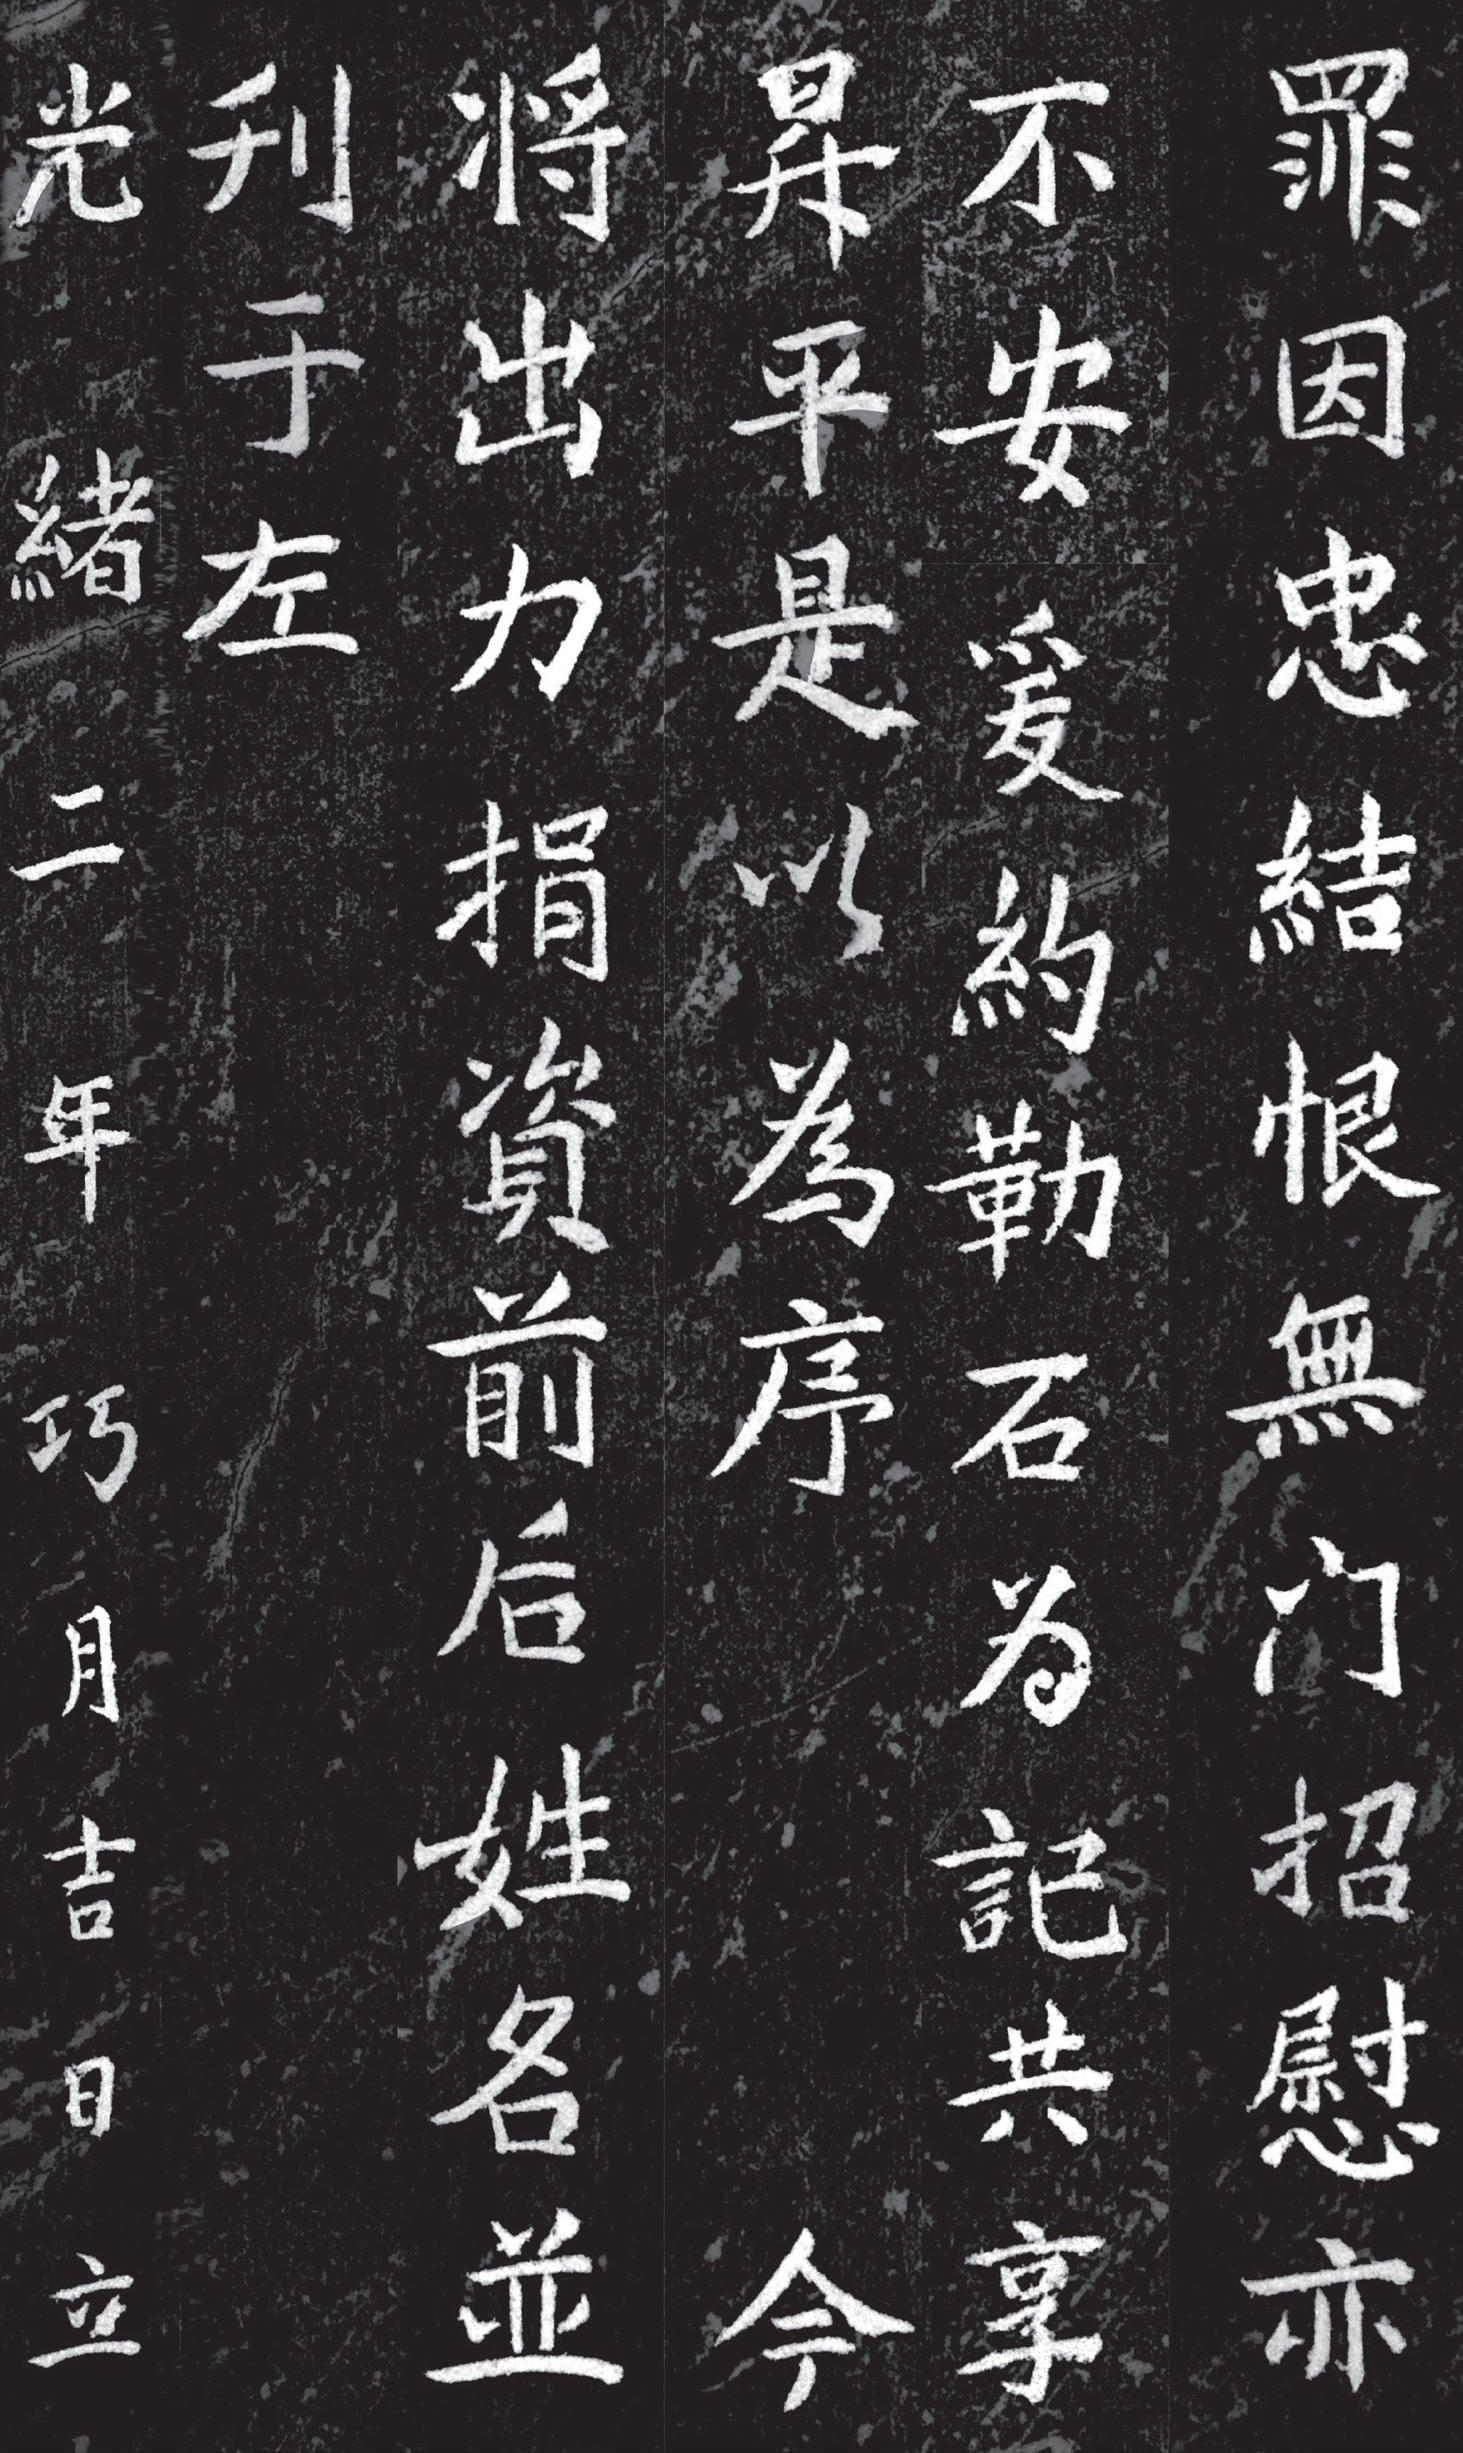 罪因忠結恨無门招慰亦
不安爰約勒石为記共享
昇平是以為序 今
将出力捐資前后姓名並
刋于左
光緒二年巧月吉日立